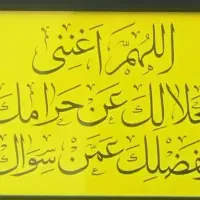 اللهُمَّ اَغْنِنِى
بحَلَالِكَ عَنْ حَرَامِكَ
بفَضْلِكَ عَمَّنْ سِوَاكَ